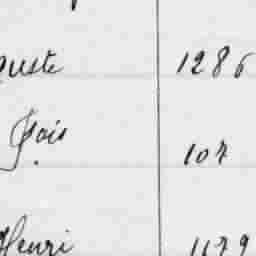 guste 1286
fois 107
Henri 1179